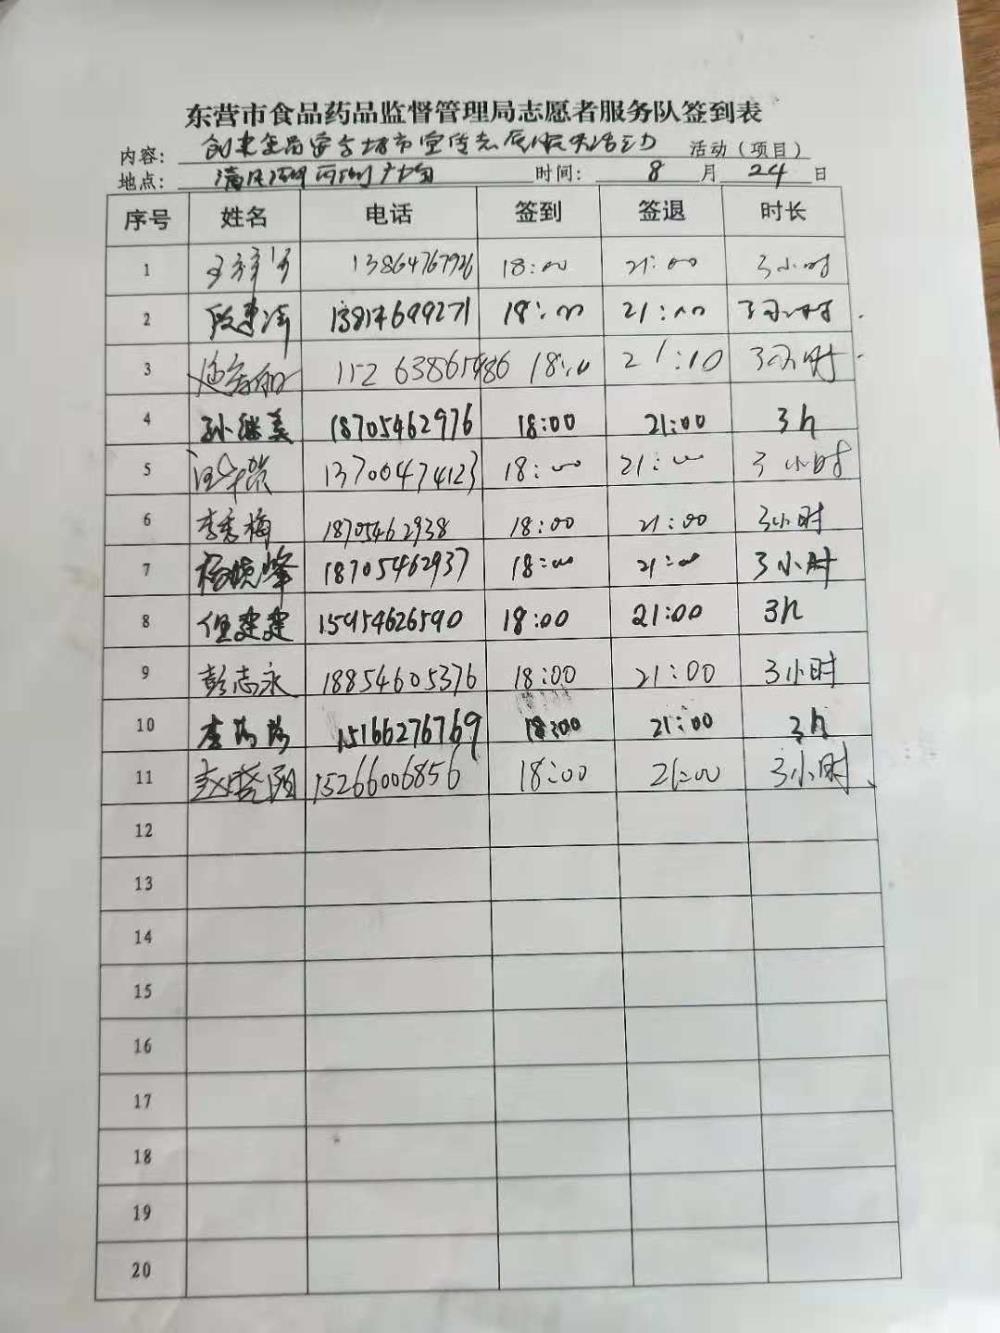 东营市食品药品监督管理局志愿者服务队签到表
内容: 创建食品安全城市宣传志愿服务活动 活动（项目）
地点: 清风湖 广场 时间: 8 月 24 日
序号 姓名 电话 签到 签退 时长
1 13864767926 18:00 21:00 3小时
2 段 18:00 21:00 3小时
3 18:00 21:10 3小时
4 孙继美 18705462976 18:00 21:00 3h
5 13700474123 18:00 21:00 3小时
6 李秀梅 18705462938 18:00 21:00 3小时
7 杨晓峰 18705462937 18:00 21:00 3小时
8 但建建 15954626590 18:00 21:00 3h
9 彭志永 18854605376 18:00 21:00 3小时
10 李 15166276769 18:00 21:00 3h
11 赵晓阳 15266006856 18:00 21:00 3小时
12
13
14
15
16
17
18
19
20